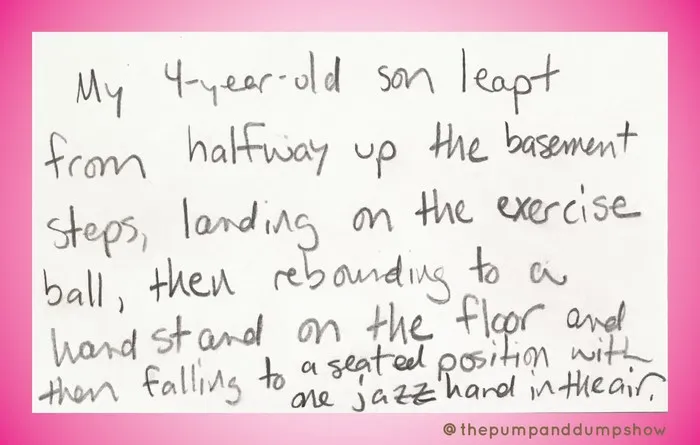 My 4-year-old son leapt
from halfway up the basement
steps, landing on the exercise
ball, then rebounding to a
hand stand on the floor and
then falling to a seated position with
one jazz hand in the air.
@thepumpanddumpshow